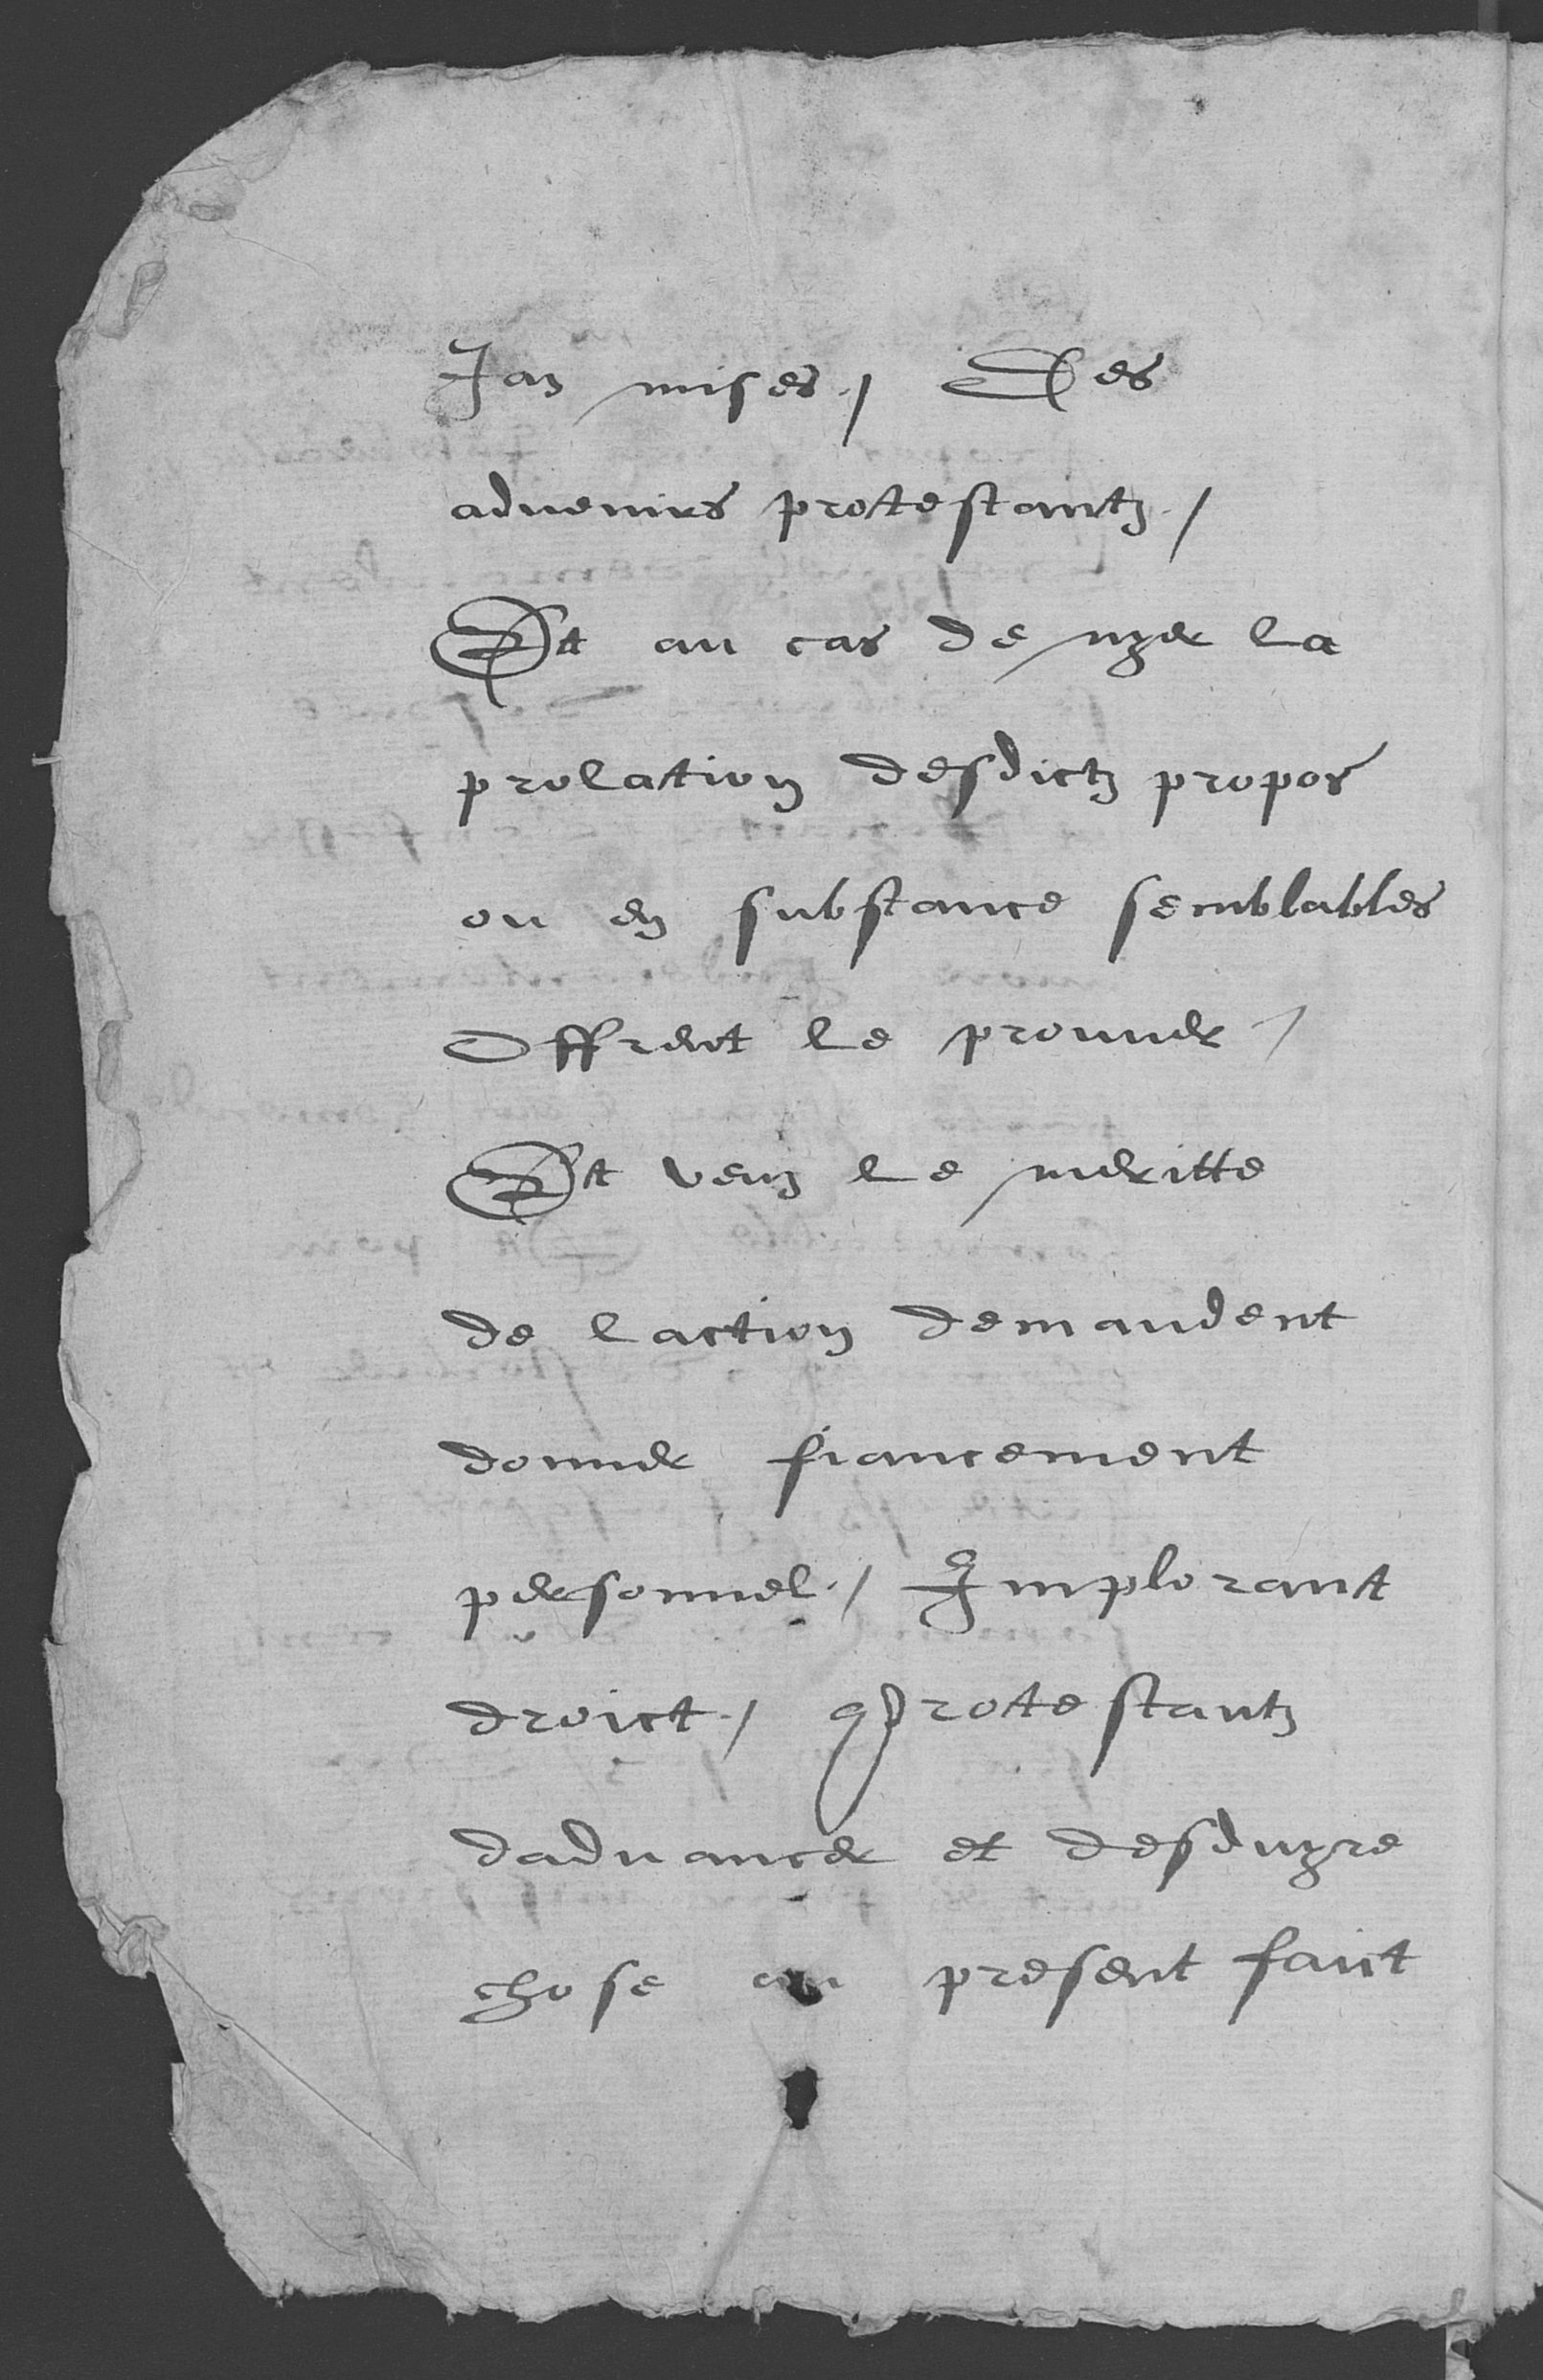 Jan mises / Des
advenirs protestantz /
Et au cas de nyer la
prolation desdictz propos
ou en substance semblables
Offrent le prouver /
Et veuz le meritte
de laction demandent
donner fiancement
personnel / Implorant
droict / Protestantz
dadvancer et desduyre
chose au present faict